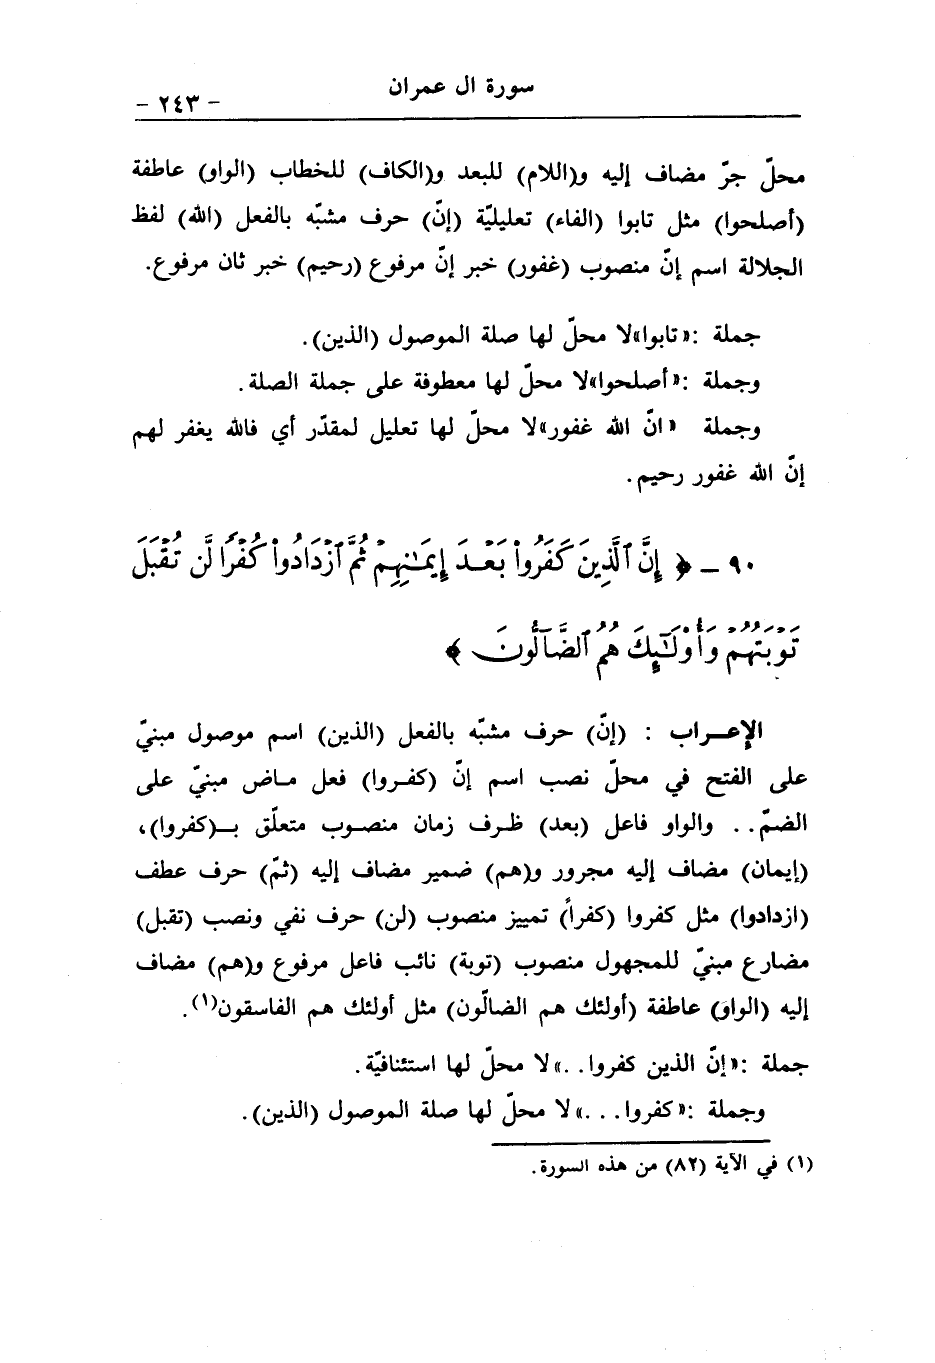 سورة ال عمران
- ٢٤٣ -
محلّ جرّ مضاف إليه و(اللام) للبعد و(الكاف) للخطاب (الواو) عاطفة
(أصلحوا) مثل تابوا (الفاء) تعليليّة (إنّ) حرف مشبّه بالفعل (الله) لفظ
الجلالة اسم إنّ منصوب (غفور) خبر إنّ مرفوع (رحيم) خبر ثان مرفوع.
جملة :«تابوا»لا محلّ لها صلة الموصول (الذين).
وجملة :«أصلحوا»لا محلّ لها معطوفة على جملة الصلة.
وجملة «انّ الله غفور»لا محلّ لها تعليل لمقدّر أي فالله يغفر لهم
إنّ الله غفور رحيم.
٩٠ - ﴿ إِنَّ ٱلَّذِينَ كَفَرُوا۟ بَعْدَ إِيمَـٰنِهِمْ ثُمَّ ٱزْدَادُوا۟ كُفْرًا لَّن تُقْبَلَ
تَوْبَتُهُمْ وَأُو۟لَـٰٓئِكَ هُمُ ٱلضَّآلُّونَ ﴾
الإعـراب : (إنّ) حرف مشبّه بالفعل (الذين) اسم موصول مبنيّ
على الفتح في محلّ نصب اسم إنّ (كفـروا) فعل مـاض مبنيّ على
الضمّ.. والواو فاعل (بعد) ظـرف زمان منصـوب متعلّق بــ(كفروا)،
(إيمان) مضاف إليه مجرور و(هم) ضمير مضاف إليه (ثمّ) حرف عطف
(ازدادوا) مثل كفروا (كفراً) تمييز منصوب (لن) حرف نفي ونصب (تقبل)
مضارع مبنيّ للمجهول منصوب (توبة) نائب فاعل مرفوع و(هم) مضاف
إليه (الواو) عاطفة (أولئك هم الضالّون) مثل أولئك هم الفاسقون(١).
جملة :«إنّ الذين كفروا...»لا محلّ لها استئنافيّة.
وجملة :«كفروا....»لا محلّ لها صلة الموصول (الذين).
(١) في الآية (٨٢) من هذه السورة.